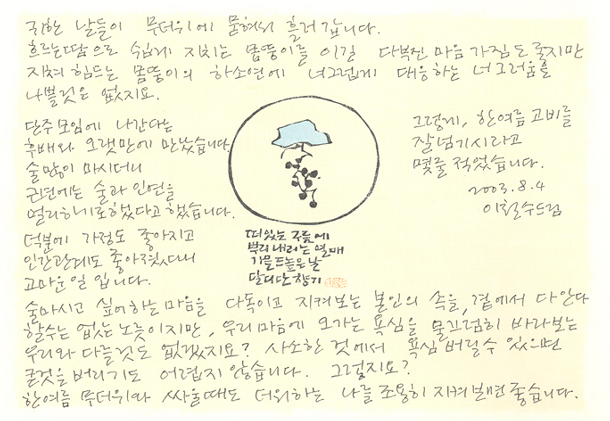 귀한 날들이 무더위에 묻혀서 흘러 갑니다.
흐르는 땀으로 쉽게 지치는 몸뚱이를 이길 다부진 마음 가짐도 좋지만
지쳐 힘드는 몸뚱이의 하소연에 너그럽게 대응하는 너그러움을
나쁠것은 없지요.
단주 모임에 나간다는
후배와 오랫만에 만났습니다.
술 많이 마시더니
근년에는 술과 인연을
멀리하기로 했다고 했습니다.
덕분에 가정도 좋아지고
인간관계도 좋아졌다니
고마운 일 입니다.
그렇게, 한여름 고비를
잘 넘기시라고
몇줄 적었습니다.
2003. 8. 4
이철수 드림
떠있는 구름에
뿌리 내리는 열매
기를 드높은 날
달디단 향기
술마시고 싶어하는 마음을 다독이고 지켜보는 본인의 속을, 곁에서 다 안다
할수는 없는 노릇이지만, 우리 마음에 오가는 욕심을 물끄러미 바라보는
우리와 다를것도 없겠지요? 사소한 것에서 욕심 버릴수 있으면
큰것을 버리기도 어렵지 않습니다. 그렇지요?
한여름 무더위와 싸울때도 더위하는 나를 조용히 지켜보면 좋습니다.